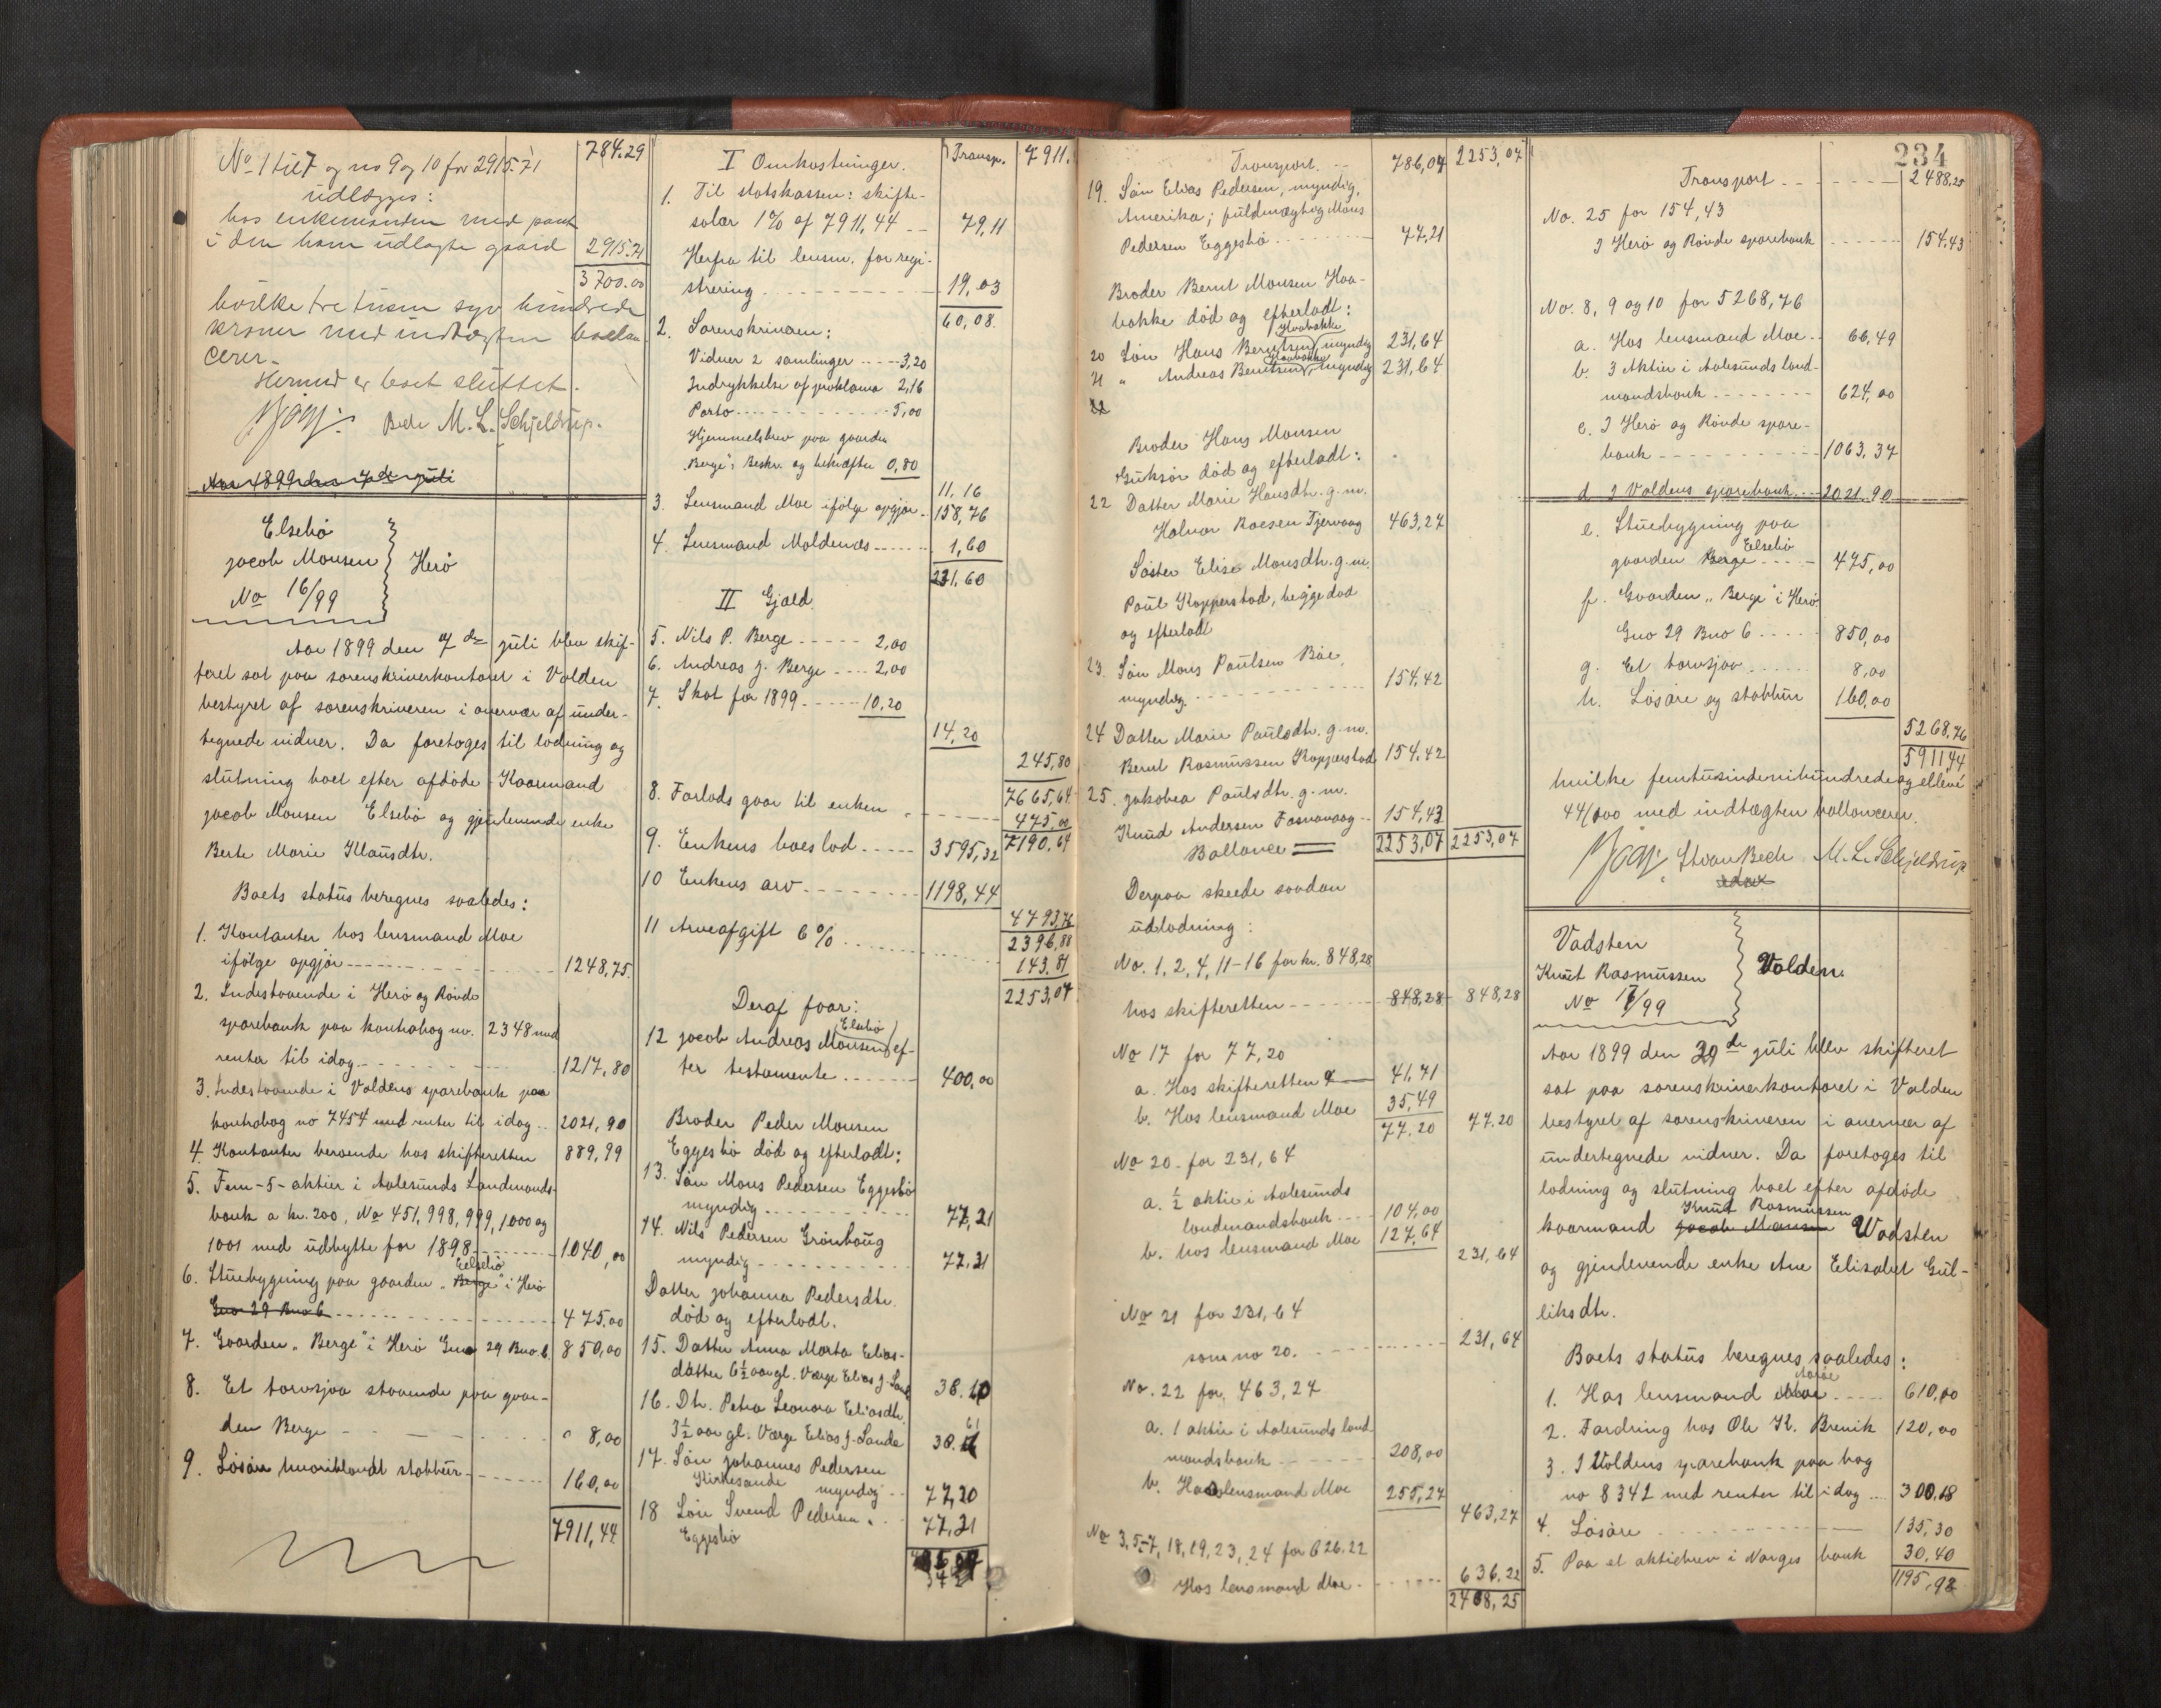 No 1 til 7 og no 9 og 10 for 2915.71 784.29
udlægges:
hos enkemanden med pant
i den ham udlagte gaard 2915.71
3700.00
hvilke tretusen syv hundrede
kroner med indtægten ballan-
cerer.
Hermed er boet sluttet.
M. L. Schjeldrup.
Aar 1899 den 7de juli
Elsebø
Jacob Monsen Herø
No 16/99
Aar 1899 den 7de juli blev skif-
teret sat paa sorenskriverkontoret i Volden
bestyret af sorenskriveren i overvær af under-
tegnede vidner. Da foretoges til lodning og
slutning boet efter afdøde Kaarmand
Jacob Monsen Elsebø og gjenlevende enke
Berte Marie Klausdtr.
Boets status beregnes saaledes:
1. Kontanter hos lensmand Moe
ifølge opgjør 1248,75.
2. Indestaaende i Herø og Røvde
sparebank paa kontrabog nr. 2348 med
renter til idag 1217,80
3. Indestaaende i Voldens sparebank paa
kontrabog no 7454 med renter til idag 2021,90
4. Kontanter beroende hos skifteretten 889,99
5. Fem -5- aktier i Aalesunds Landmands-
bank a kr. 200, No 451, 998, 999, 1000 og
1001 med udbytte for 1898 1040,00
6. Stuebygning paa gaarden "Berge" Elsebø i Herø
Gno 29 Bno 6 475.00
7. Gaarden "Berge" i Herø Gno 29 Bno 6. 850,00
8. Et torvsjaa staaende paa gaar-
den Berge 8,00
9. Løsøre hvoriblandt stabbur 160,00
7911,44
I Omkostninger. Transp. 7911.
1. Til statskassen: skifte-
salær 1% af 7911,44 79,11
Herfra til lensm. for regi-
strering 19,03
60,08.
2. Sorenskriveren:
Vidner 2 samlinger 3,20
Indrykkelse af proklama 2,16
Porto 5,00
Hjemmelsbrev paa gaarden
"Berge": Beskr. og bekræftn 0,80
11,16
3. Lensmand Moe ifølge opgjør 158,76
4. Lensmand Moldenæs 1,60
231,60
II Gjæld.
5. Nils P. Berge 2,00
6. Andreas J. Berge 2,00
7. Skat for 1899 10,20
14,20
245,80
7665,64
8. Forlods gaar til enken 475,00
7190,64
9. Enkens boeslod 3595,32
10 Enkens arv 1198,44
4793,76
2396,88
11 Arveafgift 6% 143.81
2253,07
Deraf faar:
12 Jacob Andreas Monsen Elsebø ef-
ter testamente 400,00
Broder Peder Monsen
Eggesbø død og efterladt:
13. Søn Mons Pedersen Eggesbø
myndig 77,21
14. Nils Pedersen Grønhaug
myndig 77,21
Datter Johanna Pedersdtr.
død og efterladt.
15. Datter Anna Marta Elias-
datter 6½ aar gl. Værge Elias J. Sande 38.60
16. Dtr. Petra Leonora Eliasdtr.
3½ aar gl. Værge Elias J. Sande 38.61
17. Søn Johannes Pedersen
Kirkesande myndig 77,20
18 Søn Svend Pedersen
Eggesbø 77,21
Transport. 786,04 2253,07
19. Søn Elias Pedersen, myndig,
Amerika; fuldmægtig Mons
Pedersen Eggesbø 77,21
Broder Bernt Monsen Haa-
bakke død og efterladt:
20 Søn Hans Berntsen Haabakke, myndig 231,64
21 " Andreas Berntsen Haabakke, myndig 231,64
22
Broder Hans Monsen
Gurskør død og efterladt:
22 Datter Marie Hansdtr. g. m.
Halvor Roesen Tjervaag 463,27
Søster Elise Monsdtr. g. m.
Paul Kopperstad, begge død
og efterladt
23. Søn Mons Paulsen Bøe,
myndig 154,42
24 Datter Marie Paulsdtr. g. m.
Bernt Rasmussen Kopperstad 154,42
25. Jakobea Paulsdtr. g. m.
Knud Andersen Fosnavaag 154,43
Ballance 2253,07 2253,07
Derpaa skeede saadan
udlodning:
No. 1, 2, 4, 11-16 for kr. 848,28
hos skifteretten 848,28 848,28
No 17 for 77,20
a. Hos skifteretten 41,71
b. Hos lensmand Moe 35,49
77.20 77.20
No 20 for 231,64
a. ½ aktie i Aalesunds
landmandsbank 104,00
b. hos lensmand Moe 127,64
231,64
No 21 for 231,64
som no 20. 231,64
No. 22 for 463,27
a. 1 aktie i Aalesunds land-
mandsbank 208,00
b. Hos lensmand Moe 255,27
463,27
No 3, 5-7, 18, 19, 23, 24 for 626.22
Hos lensmand Moe 636,22
2488,25
234
Transport 2488,25
No. 25 for 154,43
I Herø og Røvde sparebank 154.43
No. 8, 9 og 10 for 5268,76
a. Hos lensmand Moe 66,49
b. 3 Aktier i Aalesunds land-
mandsbank 624,00
c. I Herø og Røvde spare-
bank 1063,37
d I Voldens sparebank 2021.90
e. Stuebygning paa
gaarden Berge Elsebø 475,00
f. Gaarden "Berge" i Herø
Gno 29 Bno 6 850,00
g. Et torvsjaa 8,00
h. Løsøre og stabbur 160,00
5268,76
5911,44
hvilke femtusindenihundredeogelleve
44/100 med indtægten ballancerer.
M. L. Schjeldrup
Vadsten
Knut Rasmussen Volden.
No 17/99
Aar 1899 den 29de juli blev skifteret
sat paa sorenskriverkontoret i Volden
bestyret af sorenskriveren i overvær af
undertegnede vidner. Da foretoges til
lodning og slutning boet efter afdøde
kaarmand Jacob Monsen Knut Rasmussen Vadsten
og gjenlevende enke Ane Elisabet Gul-
liksdtr.
Boets status beregnes saaledes:
1. Hos lensmand Moe Aarøe 610,00
2. Fordring hos Ole K. Brenik 120,00
3. I Voldens sparebank paa bog
no 8342 med renter til idag 300,18
4. Løsøre 135,30
5. Paa et aktiebrev i Norges bank 30,40
1195,98